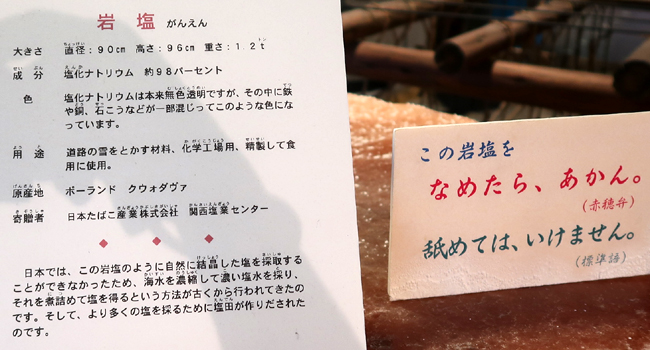 岩塩 がんえん
大きさ 直径：90cm 高さ：96cm 重さ：1.2t
成分 塩化ナトリウム 約98パーセント
色 塩化ナトリウムは本来無色透明ですが、その中に鉄
や銅、石こうなどが一部混じってこのような色にな
っています。
用途 道路の雪をとかす材料、化学工場用、精製して食
用に使用。
原産地 ポーランド クウォダヴァ
寄贈者 日本たばこ産業株式会社 関西塩業センター
日本では、この岩塩のように自然に結晶した塩を採取する
ことができなかったため、海水を濃縮して濃い塩水を採り、
それを煮詰めて塩を得るという方法が古くから行われてきたの
です。そして、より多くの塩を採るために塩田が作りだされた
のです。
この岩塩を
なめたら、あかん。
(赤穂弁)
舐めては、いけません。
(標準語)